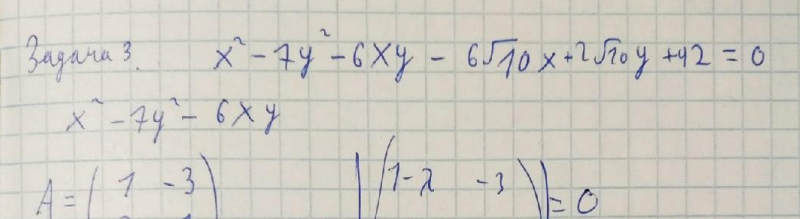 Задача 3. x² - 7y² - 6xy - 6√10x + 2√10y + 42 = 0
x² - 7y² - 6xy
A = ( 1 -3 ) |( 1-λ -3 )| = 0